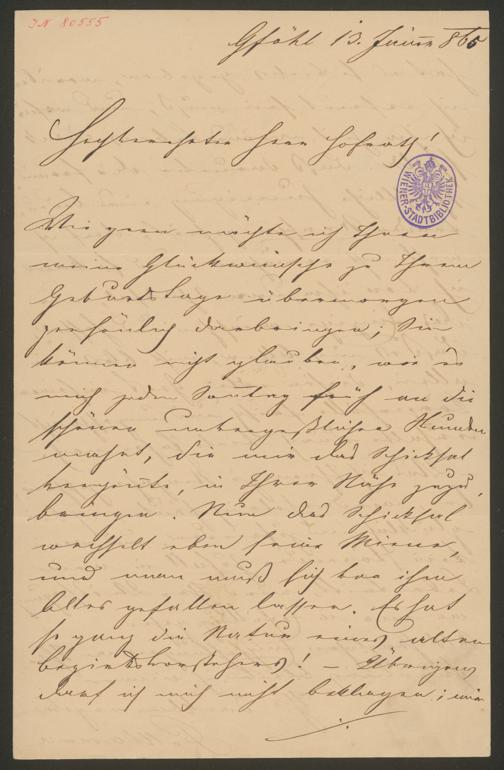 IN 80555
Gföhl 13. Jänn 865
Hochverehrter Herr Hofrath!
WIENER-STADTBIBLIOTHEK
Wie gern möchte ich Ihnen
meine Glückwünsche zu Ihrem
Geburtstage übermorgen
persönlich darbringen; Sie
können nicht glauben, wie es
mich jeden Sonntag früh an die
schönen unvergeßlichen Stunden
mahnt, die mir das Schicksal
vergönnte, in Ihrer Nähe zuzu
bringen. Nun das Schicksal
wechselt eben seine Miene,
und man muß sich von ihm
Alles gefallen lassen. Es hat
so ganz die Natur eines alten
Bezirksvorstehers! – Übrigens
darf ich mich nicht beklagen; mir